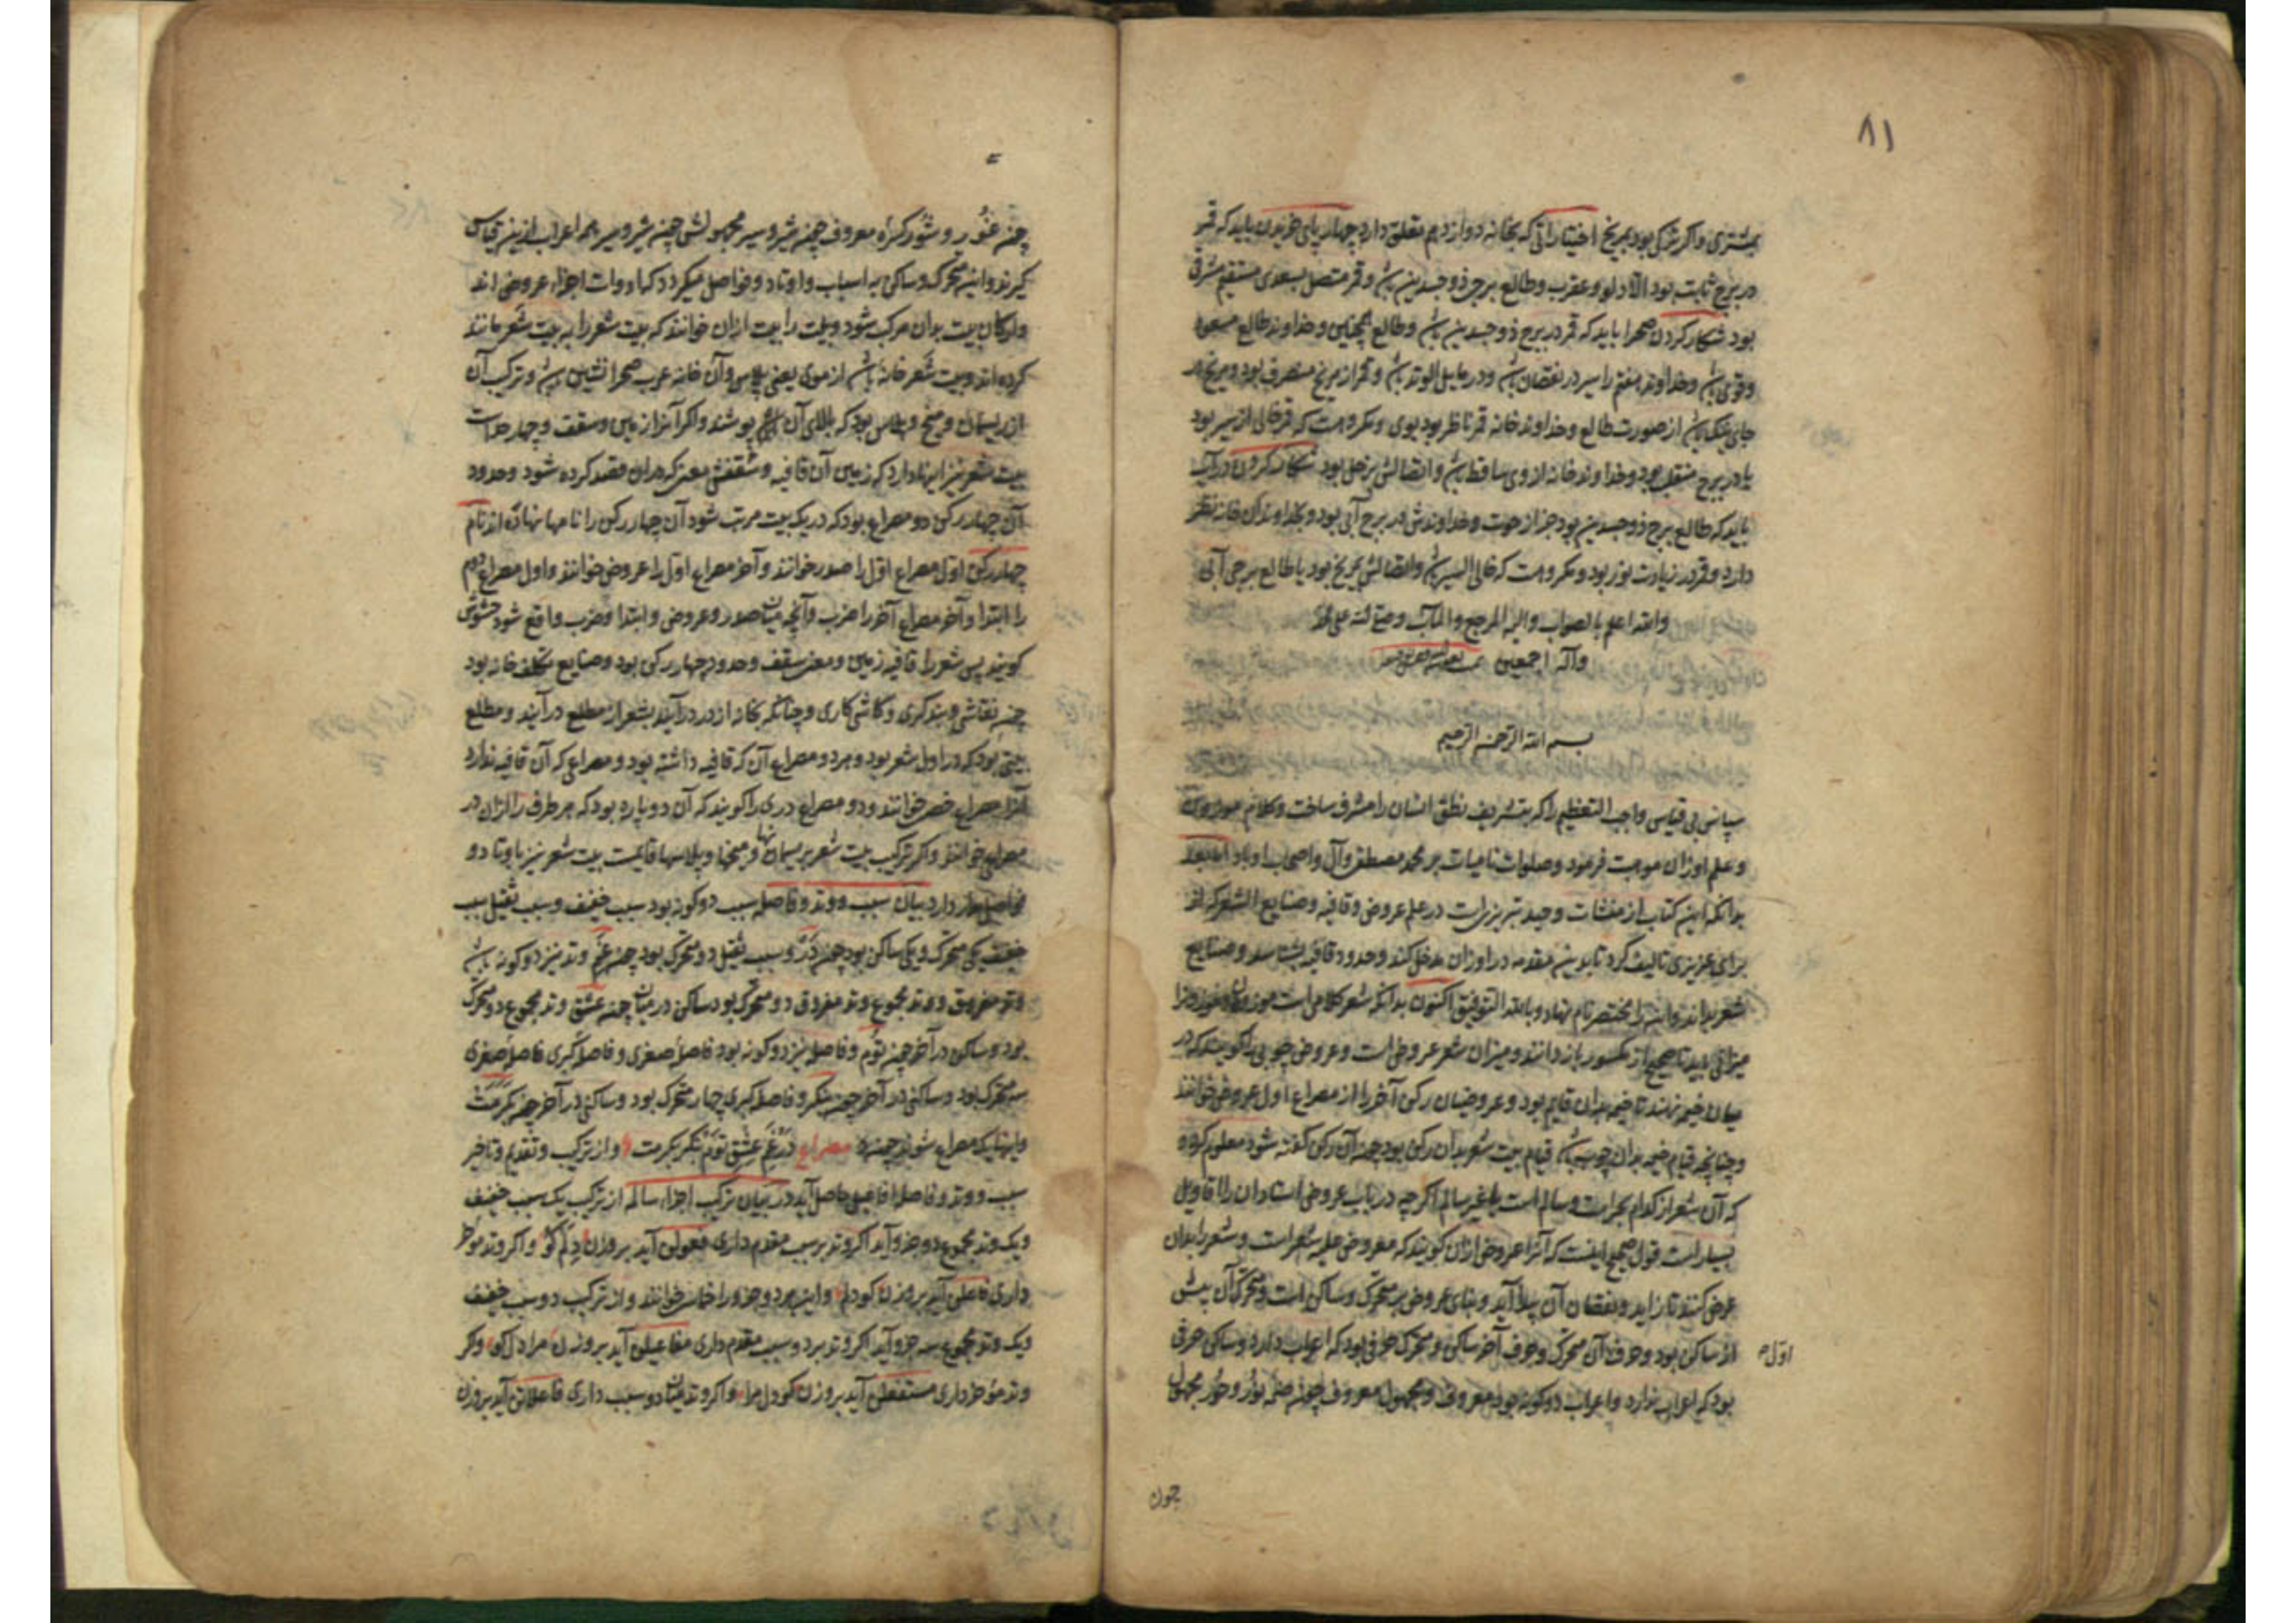 ۸۱
بمشتری و اگر ترکی بود بمریخ اختیاراتی که بخانه دوازدهم تعلق دارد چهارپای خریدن باید که قمر
در برج ثابت بود الا دلو و عقرب و طالع برجی ذوجسدین باشد و قمر متصل بسعدی مستقیم مشرقی
بود شکار کردن صحرا باید که قمر در برج ذوجسدین باشد و طالع همچنین و خداوند طالع مسعود
و قوی باشد و خداوند هفتم را سیر در نقصان باشد و در مایل الوتد باشد و قمر از مریخ منصرف بود و مریخ در
جای نیک باشد از صورت طالع و خداوند خانه قمر ناظر بود بوی و مکروهست که قمر خالی السیر بود
یا در برج منقلب بود و خداوند خانه از وی ساقط باشد و اتصالش بزحل بود شکار کردن در آب
باید که طالع برج ذوجسدین بود جز از حوت و خداوندش در برج آبی بود و بخداوند آن خانه نظر
دارد و قمر در زیادت نور بود و مکروهست که خالی السیر باشد و اتصالش بمریخ بود یا طالع برجی آبی
والله اعلم بالصواب والیه المرجع والمآب وصلی الله علی محمد
وآله اجمعین
بسم الله الرحمن الرحیم
سپاس بی قیاس واجب التعظیم را که بتشریف نطق انسان را مشرف ساخت و کلام موزون
و علم اوزان موهبت فرمود و صلوات نامیات بر محمد مصطفی و آل و اصحاب او باد اما بعد
بدانکه این کتاب از منشآت وحید تبریزیست در علم عروض و قافیه و صنایع الشعر که از
برای عزیزی تالیف کرد تا بدین مقدمه در اوزان مدخل کند و حدود قافیه بشناسد و صنایع
شعر بداند و اینرا مختصر نام نهاد و بالله التوفیق اکنون بدانکه شعر کلامیست موزون و موزون را
میزانی باید تا صحیح از مکسور باز دانند و میزان شعر عروض است و عروض چوبی را گویند که در
میان خیمه نهند تا خیمه بدان قایم بود و عروضیان رکن آخر را از مصراع اول عروض خوانند
و چنانچه قیام خیمه بدان چوب باشد قیام بیت شعر بدان رکن بود چون آن رکن گفته شود معلوم گردد
که آن شعر از کدام بحرست و سالم است یا غیر سالم اگر چه در باب عروض استادان را اقاویل
بسیارست قول صحیح اینست که آنرا عروض از آن گویند که معروض علیه شعر است و شعر را بدان
عرض کنند تا زاید و نقصان آن پیدا آید و بنای عروض بر متحرک و ساکن است و متحرک آن بیش
از ساکن بود و حرف آن متحرک و حرف آخر ساکن و متحرک حرفی بود که اعراب دارد و ساکن حرفی
اول
بود که اعراب ندارد و اعراب دو گونه بود معروف و مجهول معروف چون ضمه نور و حور مجهول
چون
چون غور و شور کسره معروف چون شیر و سیر مجهولش چون شیر و سیر همه اعراب ازین قیاس
گیرند و این متحرک و ساکن به اسباب و اوتاد و فواصل میگردد که ادوات اجزاء عروض اند
و ارکان بیت بدان مرکب شود و بیت را بیت از آن خوانند که بیت شعر را به بیت شعر مانند
کرده اند و بیت شعر خانه باشد از موی یعنی پلاس و آن خانه عرب صحرا نشین باشد و ترکیب آن
از ریسمان و میخ و پلاس بود که بالای آن پوشند و اگر آنرا زمین و سقف و چهار حد است
بیت شعر نیز اینها دارد که زمین آن قافیه و سقفش معنی که در آن قصد کرده شود و حدود
آن چهار رکن دو مصراع بود که در یک بیت مرتب شود آن چهار رکن را نامها نهاده اند نام
چهار رکن اول مصراع اول را صدر خوانند و آخر مصراع اول را عروض خوانند و اول مصراع دوم
را ابتدا و آخر مصراع آخر را ضرب و آنچه میان صدر و عروض و ابتدا و ضرب واقع شود حشوش
گویند پس شعر را قافیه زمین و معنی سقف و حدود چهار رکن بود و صنایع تکلف خانه بود
چون نقاشی و بندگری و کاشی کاری و چنانکه بخانه از در درآیند بشعر از مطلع درآیند و مطلع
بیتی بود که در اول شعر بود و هر دو مصراع آن که قافیه داشته بود و مصراعی که آن قافیه ندارد
آنرا مصراع خصی خوانند و دو مصراع دری را گویند که آن دو پاره بود که هر طرف را از آن در
مصراع خوانند و اگر ترکیب بیت شعر بریسمانها و میخها و پلاسها قایمست بیت شعر نیز باوتاد و
فواصل دارد بیان سبب و وتد و فاصله سبب دو گونه بود سبب خفیف و سبب ثقیل سبب
خفیف یکی متحرک و یکی ساکن بود چون در و سبب ثقیل دو متحرک بود چون غم وتد نیز دو گونه باشد
وتد مفروق و وتد مجموع وتد مفروق دو متحرک بود ساکن در میان چون عشق وتد مجموع دو متحرک
بود و ساکن در آخر چون توم و فاصله نیز دو گونه بود فاصله صغری و فاصله کبری فاصله صغری
سه متحرک بود و ساکنی در آخر چون بنگر و فاصله کبری چهار متحرک بود و ساکنی در آخر چون بکرمت
و اینها یک مصراع شود چون مصراع در غم عشق توم بنگر بکرمت و از ترکیب و تقدیم و تاخیر
سبب و وتد و فاصله افاعیل حاصل آید در بیان ترکیب اجزاء سالم از ترکیب یک سبب خفیف
و یک وتد مجموع دو جزو آید اگر وتد بر سبب مقدم داری فعولن آید بر وزن دلم کو و اگر وتد موخر
داری فاعلن آید بر وزن کو دلم و این هر دو جزو را خماسی خوانند و از ترکیب دو سبب خفیف
و یک وتد مجموع سه جزو آید اگر وتد بر دو سبب مقدم داری مفاعیلن آید بر وزن مرا دل کو و گر
وتد موخر داری مستفعلن آید بر وزن کو دل مرا و اگر وتد میان دو سبب داری فاعلاتن آید بر وزن